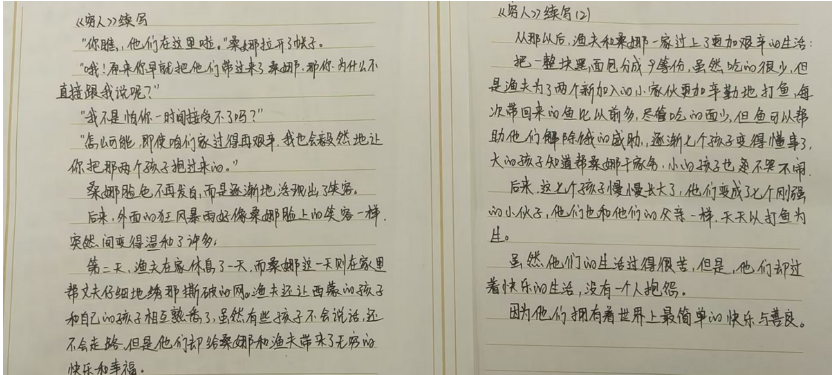 《穷人》续写
"你瞧,他们在这里啦。"桑娜拉开了帐子。
"哦!原来你早就把他们带过来了桑娜,那你为什么不
直接跟我说呢?"
"我不是怕你一时间接受不了吗?"
"怎么可能,即使咱们家过得再艰辛,我也会毅然地让
你把那两个孩子抱过来的。"
桑娜脸色不再发白,而是逐渐地浮现出了笑容。
后来,外面的狂风暴雨好像桑娜脸上的笑容一样,
突然间变得温和了许多。
第二天,渔夫在家休息了一天,而桑娜这一天则在家里
帮丈夫仔细地缝那撕破的网。渔夫还让西蒙的孩子
和自己的孩子相互熟悉了,虽然有些孩子不会说话,还
不会走路,但是他们却给桑娜和渔夫带来了无穷的
快乐和幸福。
《穷人》续写(2)
从那以后,渔夫和桑娜一家过上了更加艰辛的生活:
把一整块黑面包分成9等份,虽然吃的很少,但
是渔夫为了两个新加入的小家伙更加辛勤地打鱼,每
次带回来的鱼比从前多,尽管吃的面少,但鱼可以帮
助他们解除饿的威胁,逐渐七个孩子变得懂事了,
大的孩子知道帮桑娜干家务,小的孩子也是不哭不闹。
后来,这七个孩子慢慢长大了,他们变成了七个刚强
的小伙子,他们也和他们的父亲一样,天天以打鱼为
生。
虽然他们的生活过得很苦,但是,他们却过
着快乐的生活,没有一个人抱怨。
因为他们拥有着世界上最简单的快乐与善良。